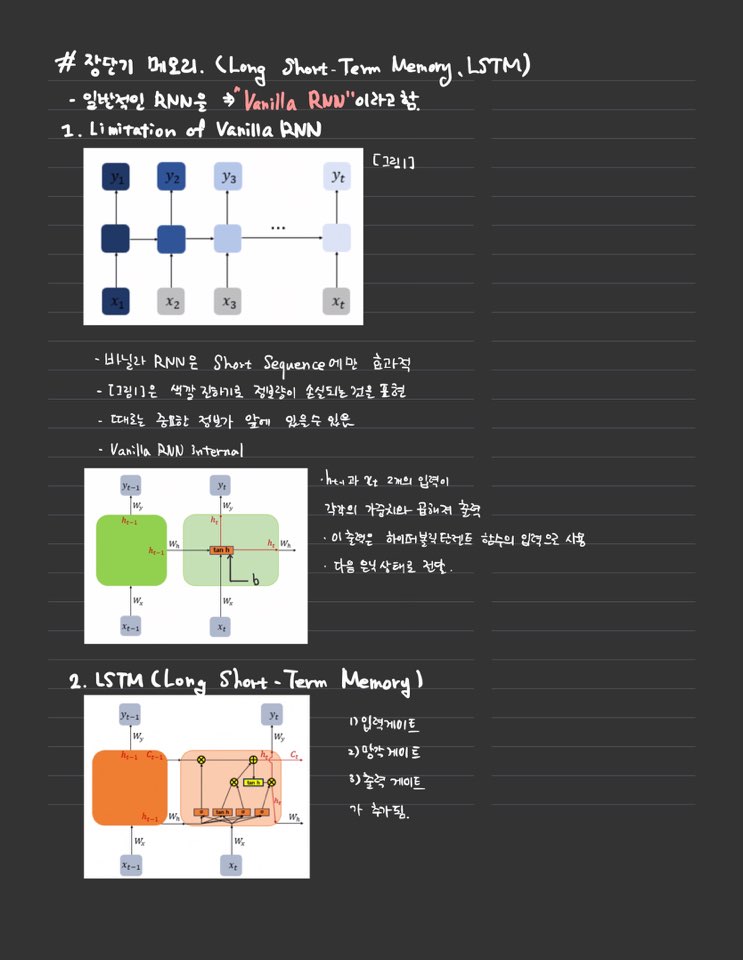 # 장단기 메모리. (Long Short-Term Memory, LSTM)
- 일반적인 RNN을 → "Vanilla RNN"이라고 함.
1. Limitation of Vanilla RNN
[그림1]
y₁ y₂ y₃ yₜ
...
x₁ x₂ x₃ xₜ
- 바닐라 RNN은 Short Sequence에만 효과적
- [그림1]은 색깔 진하기로 정보량이 손실되는 것을 표현
- 때로는 중요한 정보가 앞에 있을 수 있음
- Vanilla RNN Internal
yₜ₋₁ yₜ
W_y W_y
hₜ₋₁ hₜ
hₜ₋₁ W_h tan h hₜ W_h
b
W_x W_x
xₜ₋₁ xₜ
· hₜ₋₁과 xₜ 2개의 입력이
각각의 가중치와 곱해져 출력
· 이 출력은 하이퍼볼릭탄젠트 함수의 입력으로 사용
· 다음 은닉상태로 전달.
2. LSTM (Long Short-Term Memory)
yₜ₋₁ yₜ
W_y W_y
hₜ₋₁ Cₜ₋₁ hₜ Cₜ
tan h
hₜ
σ tan h σ σ
hₜ₋₁ W_h W_h
W_x W_x
xₜ₋₁ xₜ
1) 입력게이트
2) 망각게이트
3) 출력 게이트
가 추가됨.